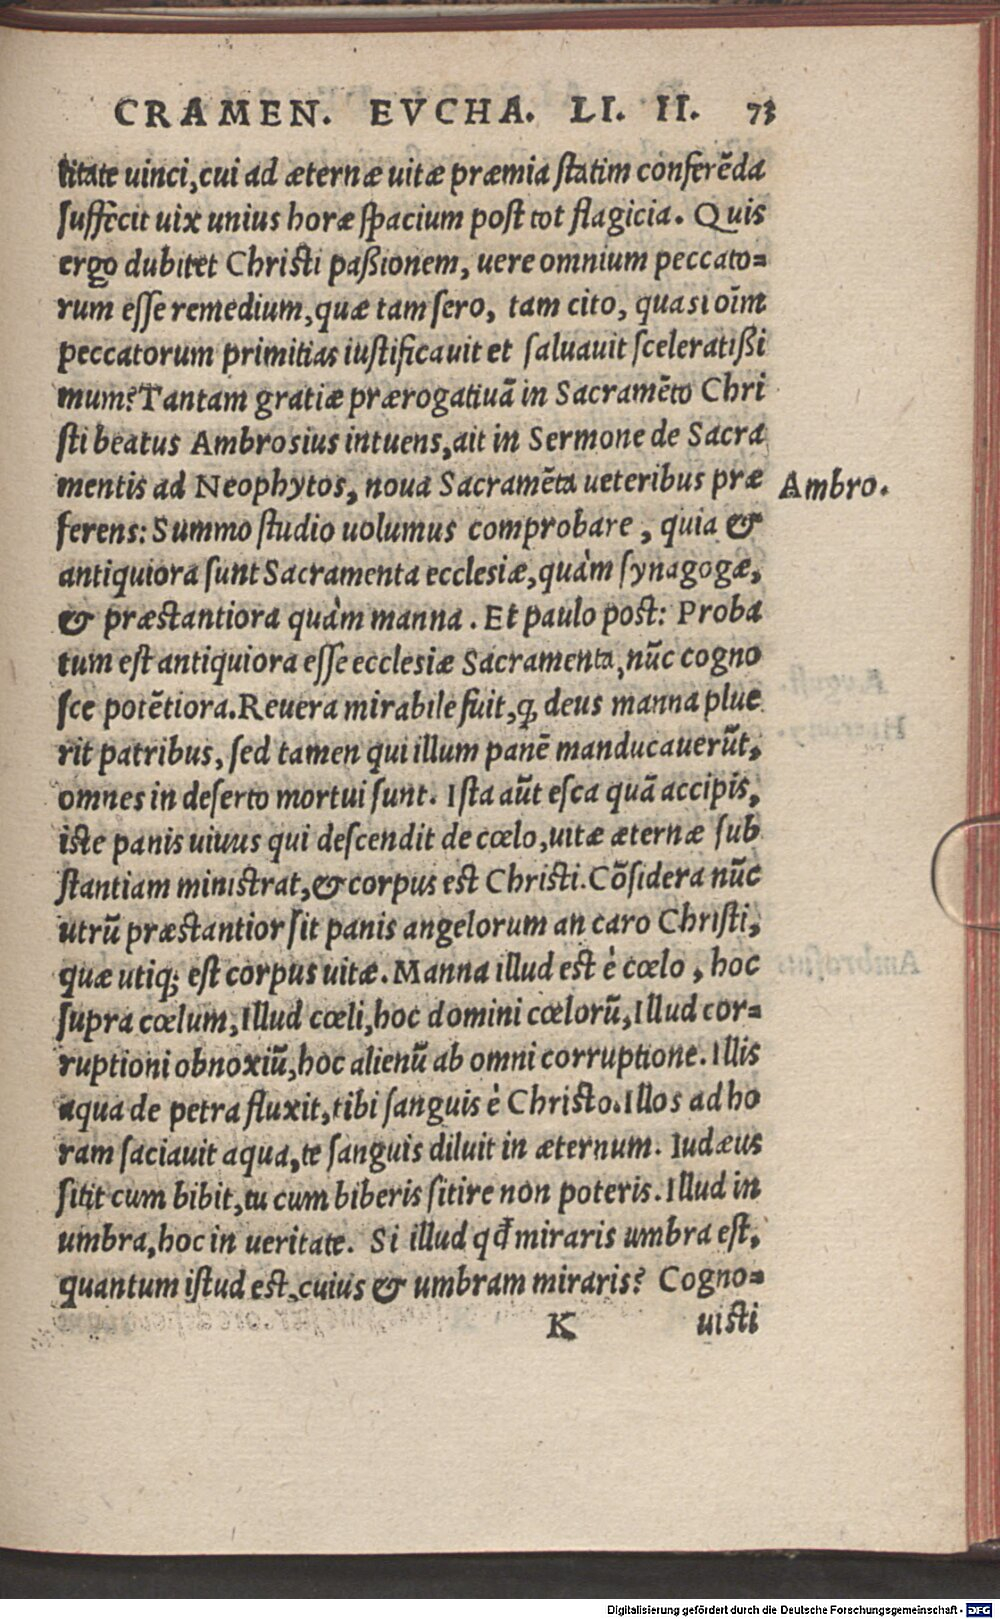 CRAMEN. EVCHA. LI. II. 73
titate uinci, cui ad æternæ uitæ præmia ſtatim conferẽda
ſuffecit uix unius horæ ſpacium poſt tot flagicia. Quis
ergo dubitet Chriſti paßionem, uere omnium peccato=
rum eſſe remedium, quæ tam ſero, tam cito, quaſi oĩm
peccatorum primitias iuſtificauit et ſaluauit ſceleratißi
mum? Tantam gratiæ prærogatiuã in Sacramẽto Chri
ſti beatus Ambroſius intuens, ait in Sermone de Sacra
mentis ad Neophytos, noua Sacramẽta ueteribus præ
Ambro.
ferens: Summo ſtudio uolumus comprobare, quia &
antiquiora ſunt Sacramenta eccleſiæ, quàm ſynagogæ,
& præſtantiora quàm manna. Et paulo poſt: Proba
tum eſt antiquiora eſſe eccleſiæ Sacramenta, nũc cogno
ſce potẽtiora. Reuera mirabile fuit, ꝙ deus manna plue
rit patribus, ſed tamen qui illum panẽ manducauerũt,
omnes in deſerto mortui ſunt. Iſta aũt eſca quã accipis,
iſte panis uiuus qui deſcendit de cœlo, uitæ æternæ ſub
ſtantiam miniſtrat, & corpus eſt Chriſti. Cõſidera nũc
utrũ præſtantior ſit panis angelorum an caro Chriſti,
quæ utiq; eſt corpus uitæ. Manna illud eſt è cœlo, hoc
ſupra cœlum, Illud cœli, hoc domini cœlorũ, Illud cor=
ruptioni obnoxiũ, hoc alienũ ab omni corruptione. Illis
aqua de petra fluxit, tibi ſanguis è Chriſto. Illos ad ho
ram ſaciauit aqua, te ſanguis diluit in æternum. Iudæus
ſitit cum bibit, tu cum biberis ſitire non poteris. Illud in
umbra, hoc in ueritate. Si illud qđ miraris umbra eſt,
quantum iſtud eſt, cuius & umbram miraris? Cogno=
K uiſti
Digitalisierung gefördert durch die Deutsche Forschungsgemeinschaft - DFG